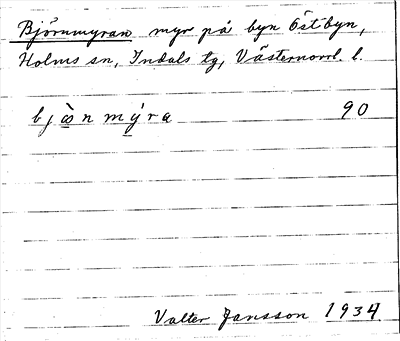 Björnmyran myr på byn Östbyn,
Holms sn, Indals tg, Västernorrl. l.
bjö̀n mýra 90
Valter Jansson 1934